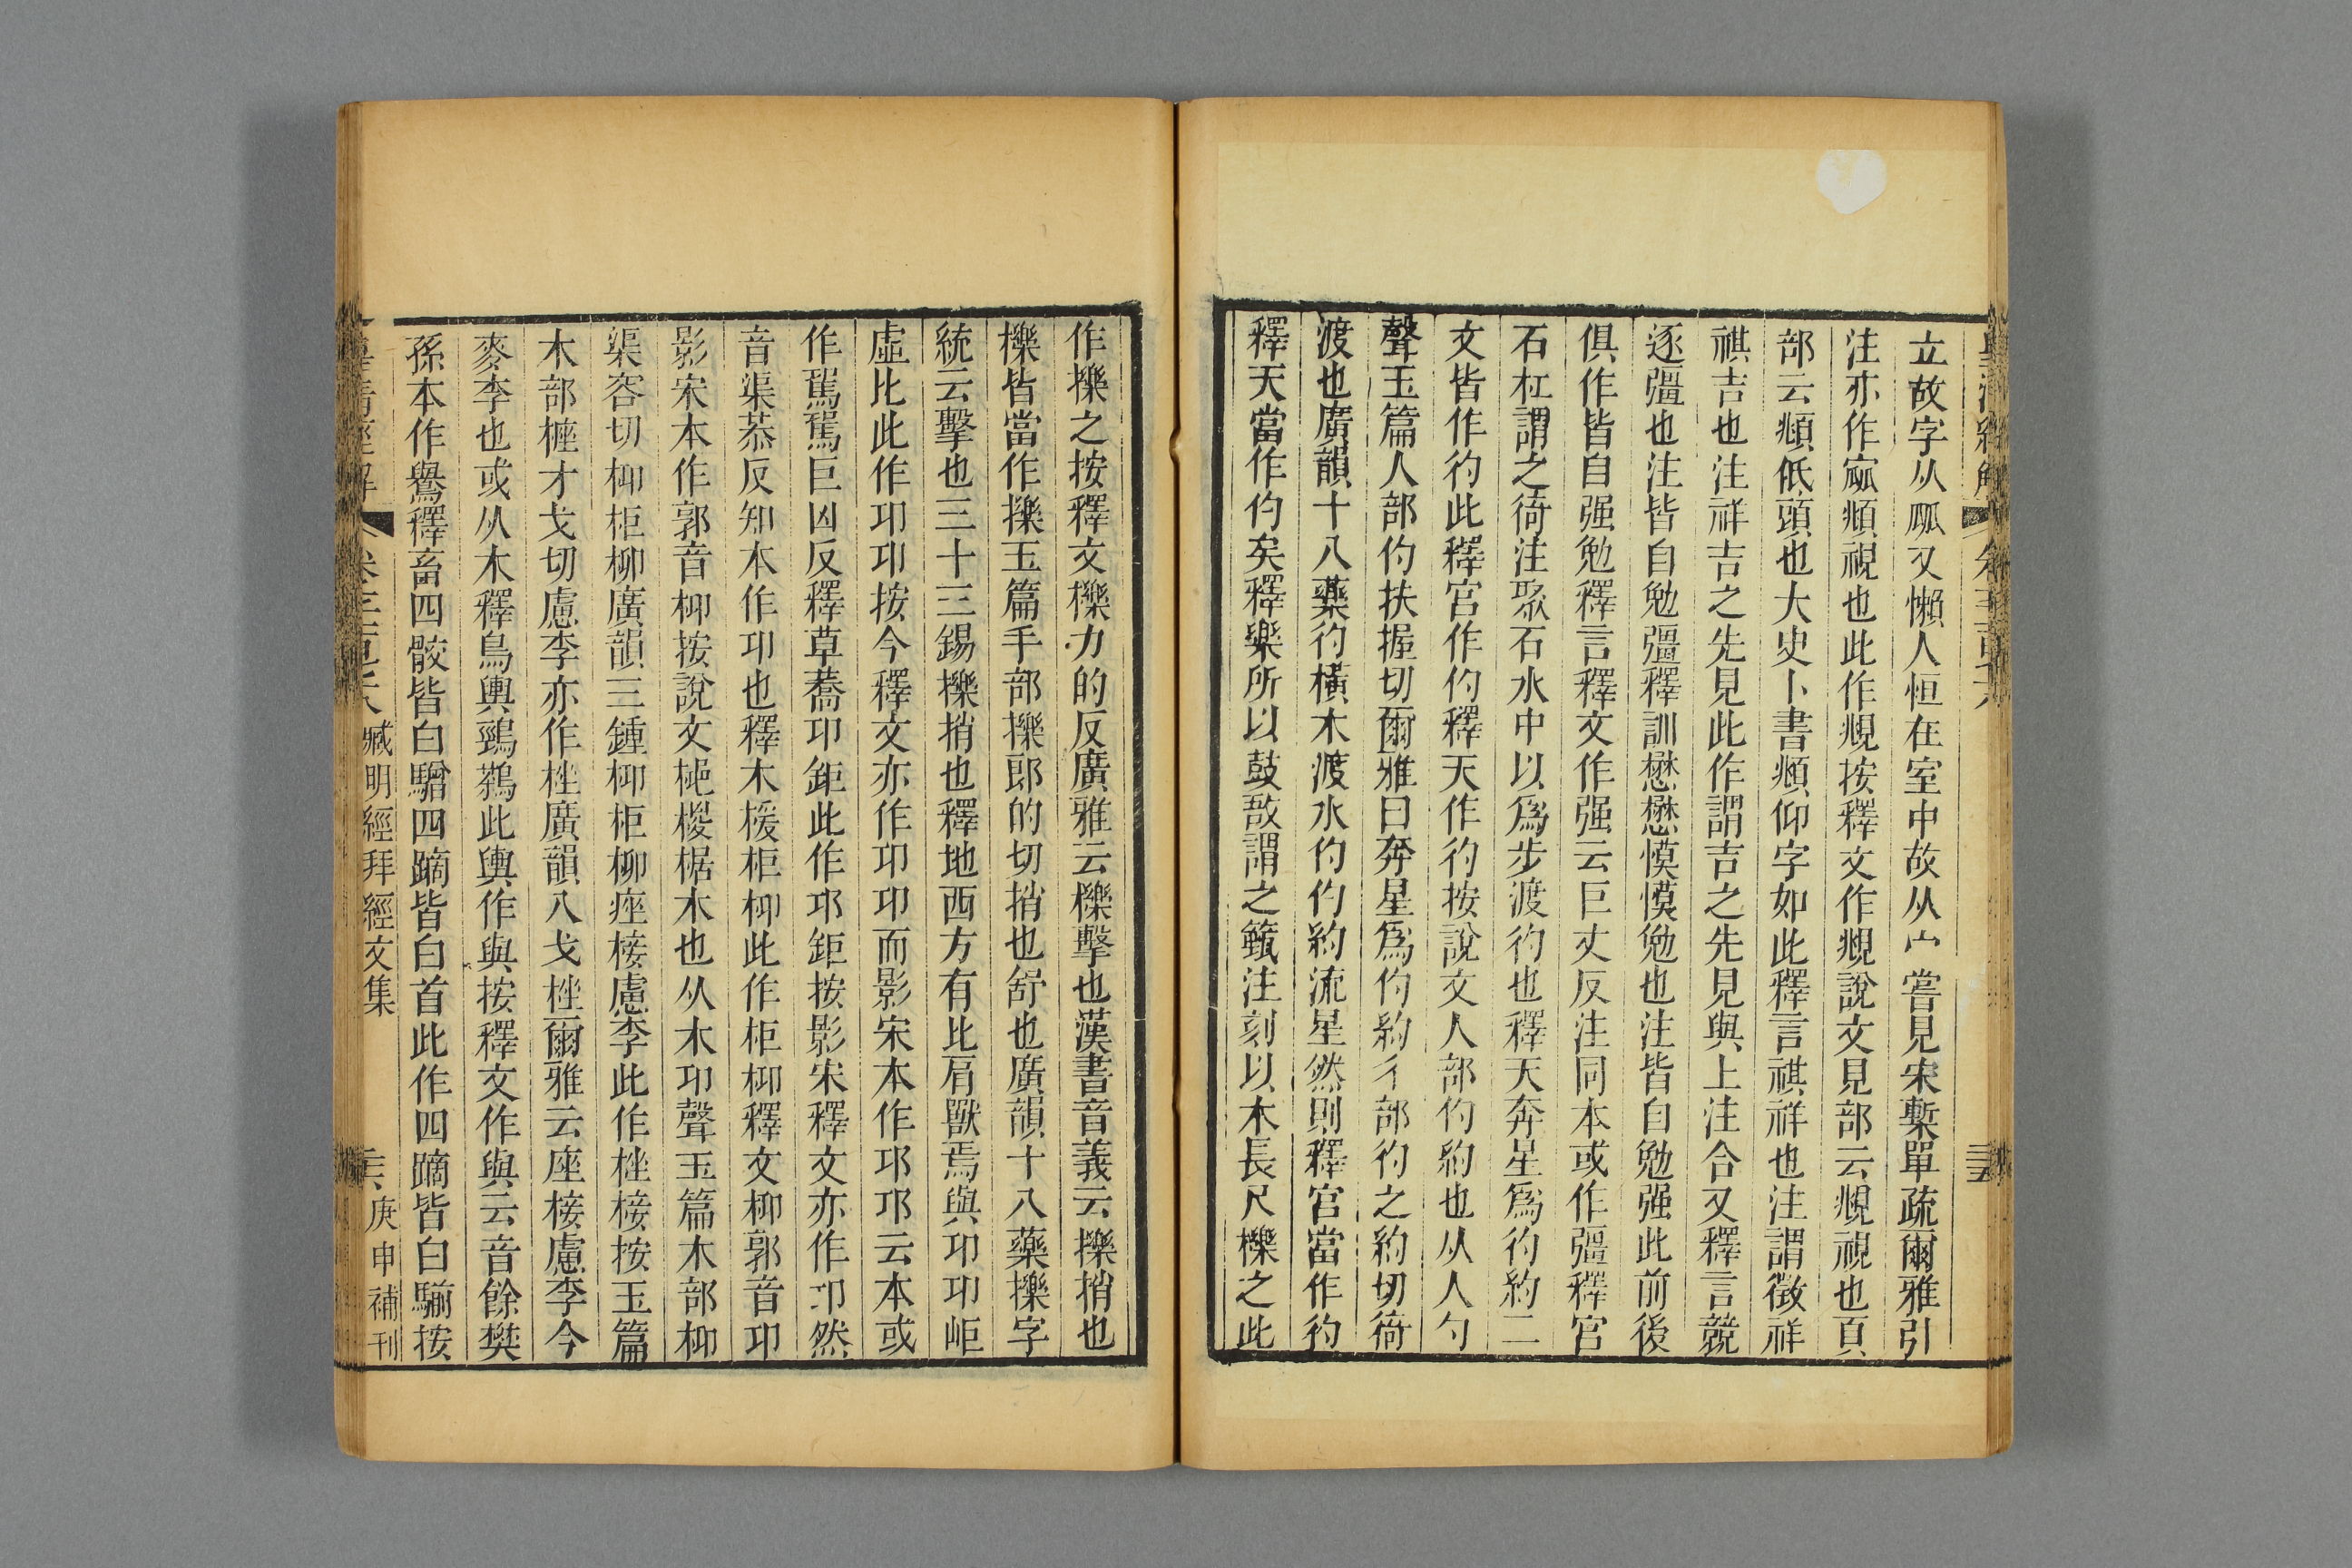 立故字从㼌又懶人恒在室中故从宀嘗見宋槧單疏爾雅引
注亦作寙頫視也此作覜按釋文作覜說文見部云覜視也頁
部云頫低頭也大史卜書頫仰字如此釋言祺祥也注謂徵祥
祺吉也注祥吉之先見此作謂吉之先見與上注合又釋言競
逐彊也注皆自勉彊釋訓懋懋慔慔勉也注皆自勉强此前後
俱作皆自强勉釋言釋文作强云巨丈反注同本或作彊釋宮
石杠謂之徛注聚石水中以爲步渡彴也釋天奔星爲彴約二
文皆作彴此釋宮作仢釋天作彴按說文人部仢約也从人勺
聲玉篇人部仢扶握切爾雅曰奔星爲仢約彳部彴之約切徛
渡也廣韻十八藥彴橫木渡水仢仢約流星然則釋宮當作彴
釋天當作仢矣釋樂所以鼓敔謂之籈注刻以木長尺櫟之此
作擽之按釋文櫟力的反廣雅云櫟擊也漢書音義云擽捎也
櫟皆當作擽玉篇手部擽郎的切捎也舒也廣韻十八藥擽字
統云擊也二十三錫擽捎也釋地西方有比肩獸焉與卭卭岠
虛比此作卭卭按今釋文亦作卭卭而影宋本作邛邛云本或
作䮗䮗巨凶反釋草蕎卭鉅此作邛鉅按影宋釋文亦作卭然
音渠恭反知本作卭也釋木楥柜桏此作柜枊釋文柳郭音卭
影宋本作郭音枊按說文桏椶椐木也从木卭聲玉篇木部枊
渠容切枊柜柳廣韻三鍾枊柜柳痤椄慮李此作桽椄按玉篇
木部㮛才戈切慮李亦作桽廣韻八戈桽爾雅云座椄慮李今
麥李也或从木釋鳥輿鵛鷋此輿作與按釋文作與云音餘樊
孫本作鸒釋畜四骹皆白驓四蹢皆白首此作四蹢皆白騚按
臧明經拜經文集
庚申補刊